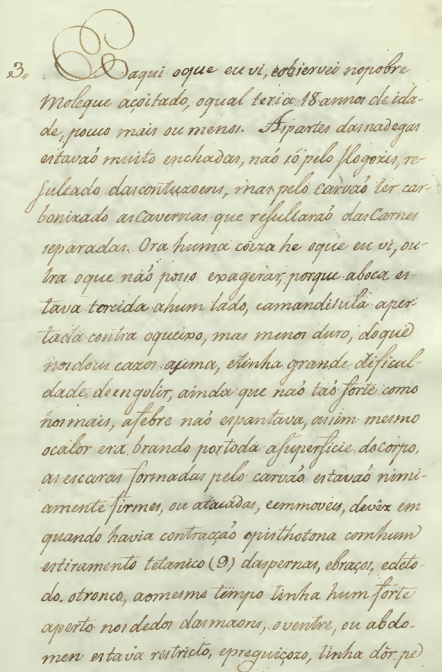 3. Eaqui oque eu vi, eobservei nopobre
Moleque açoitado, oqual teria 18 annos deida-
de, pouco mais ou menos. Aspartes dasnadegas
estavaó muito enchadas, naó só pelo flogozes, re-
sultado dascontuzoens, mas pelo carvaó ter car-
bonizado ascavernas que resultaraó dascarnes
separadas. Ora huma coiza he oque eu vi, ou-
tra oque não posso exagerar, porque aboca es-
tava torcida ahum lado, eamandibula aper-
tada contra oqueixo, mas menos duro, doque
nosdous cazos açima, etinha grande dificul-
dade deengolir, ainda que naó taó forte como
nosmais, afebre naó espantava, assim mesmo
ocalor era brando portoda asuperficie docorpo,
as escaras formadas pelo carvaó estavaó nimi-
amente firmes, ou atacadas, eemmoveis, devêz em
quando havia contracção episthotona comhum
estiramento tetanico (9) daspernas, ebraços, edeto-
do otronco, aomesmo tempo tinha hum forte
aperto nos dedos dasmaons, oventre, ou abdo-
men estava restricto, epreguiçozo, tinha dôr pe